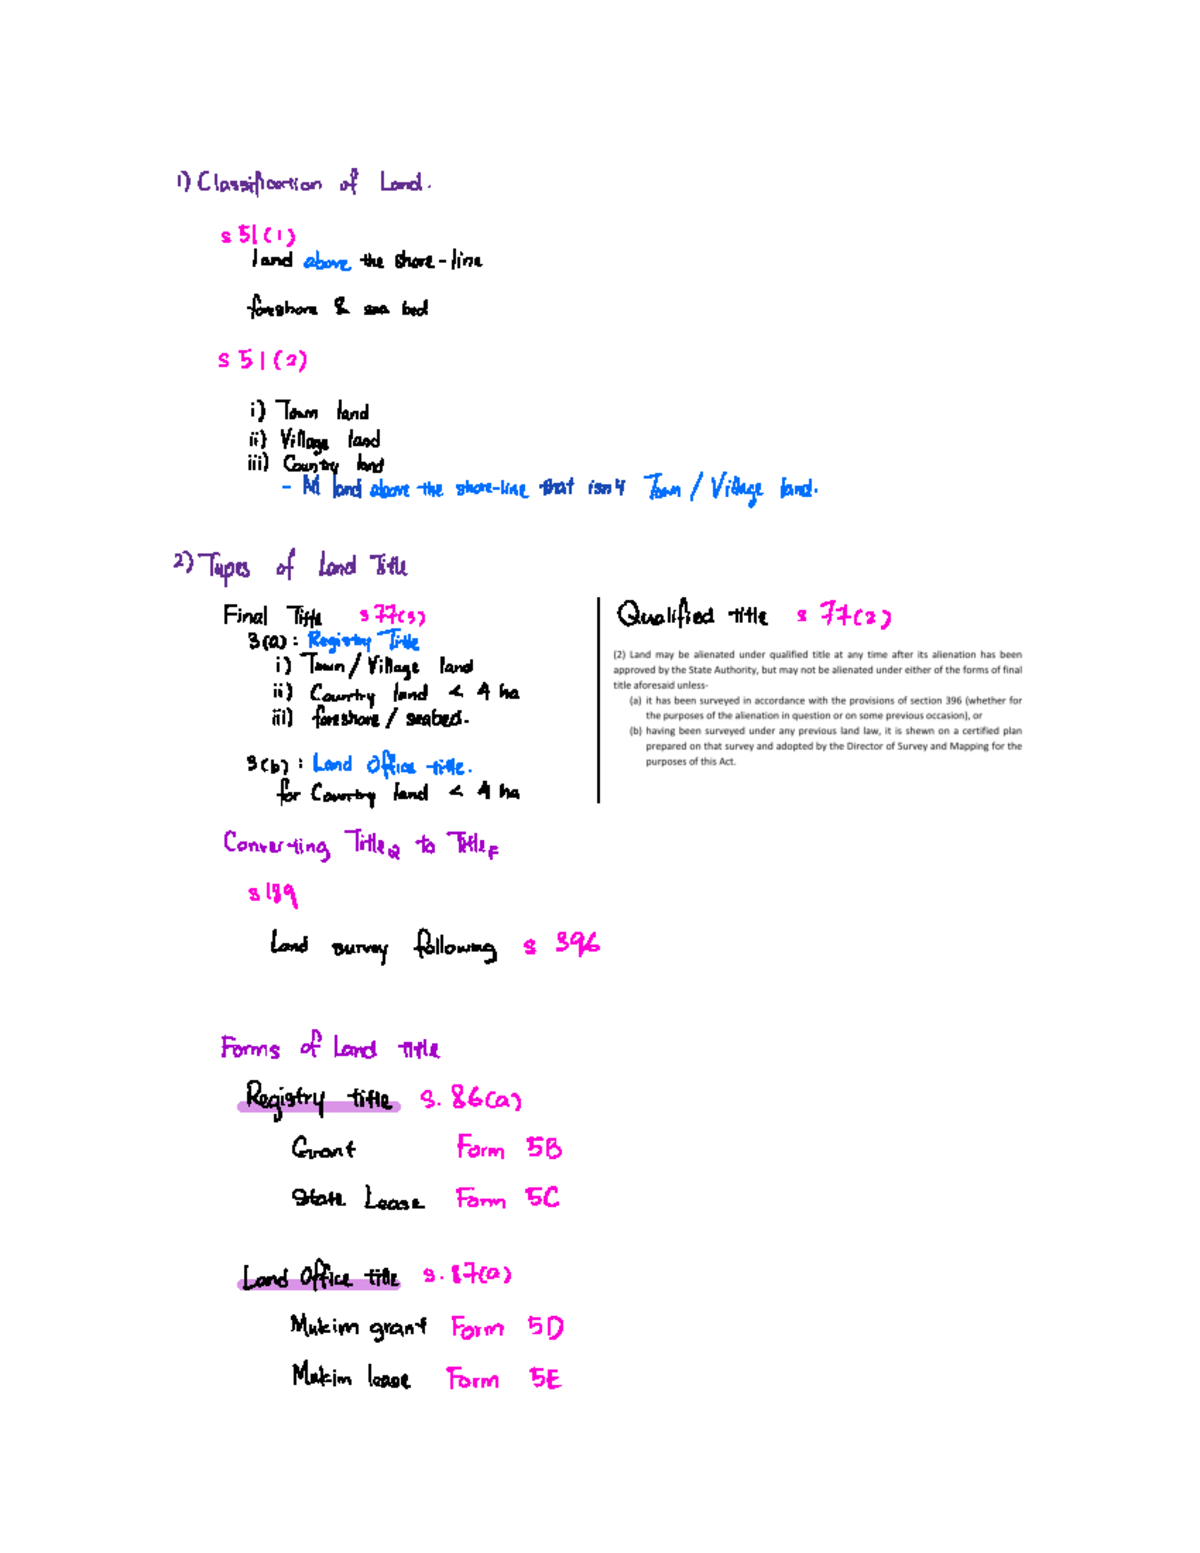 1) Classification of Land.
s 51(1)
land above the shore-line
foreshore & sea bed
s 51(2)
i) Town land
ii) Village land
iii) Country land
- All land above the shore-line that isn't Town / Village land.
2) Types of Land Title
Final Title s 77(3)
3(a) : Registry Title
i) Town / Village land
ii) Country land < 4 ha
iii) foreshore / seabed.
3(b) : Land Office title.
for Country land < 4 ha
Qualified title s 77(2)
(2) Land may be alienated under qualified title at any time after its alienation has been
approved by the State Authority, but may not be alienated under either of the forms of final
title aforesaid unless-
(a) it has been surveyed in accordance with the provisions of section 396 (whether for
the purposes of the alienation in question or on some previous occasion), or
(b) having been surveyed under any previous land law, it is shewn on a certified plan
prepared on that survey and adopted by the Director of Survey and Mapping for the
purposes of this Act.
Converting TitleQ to TitleF
s 189
Land survey following s 396
Forms of Land title
Registry title s. 86(a)
Grant Form 5B
State Lease Form 5C
Land Office title s. 87(a)
Mukim grant Form 5D
Mukim lease Form 5E